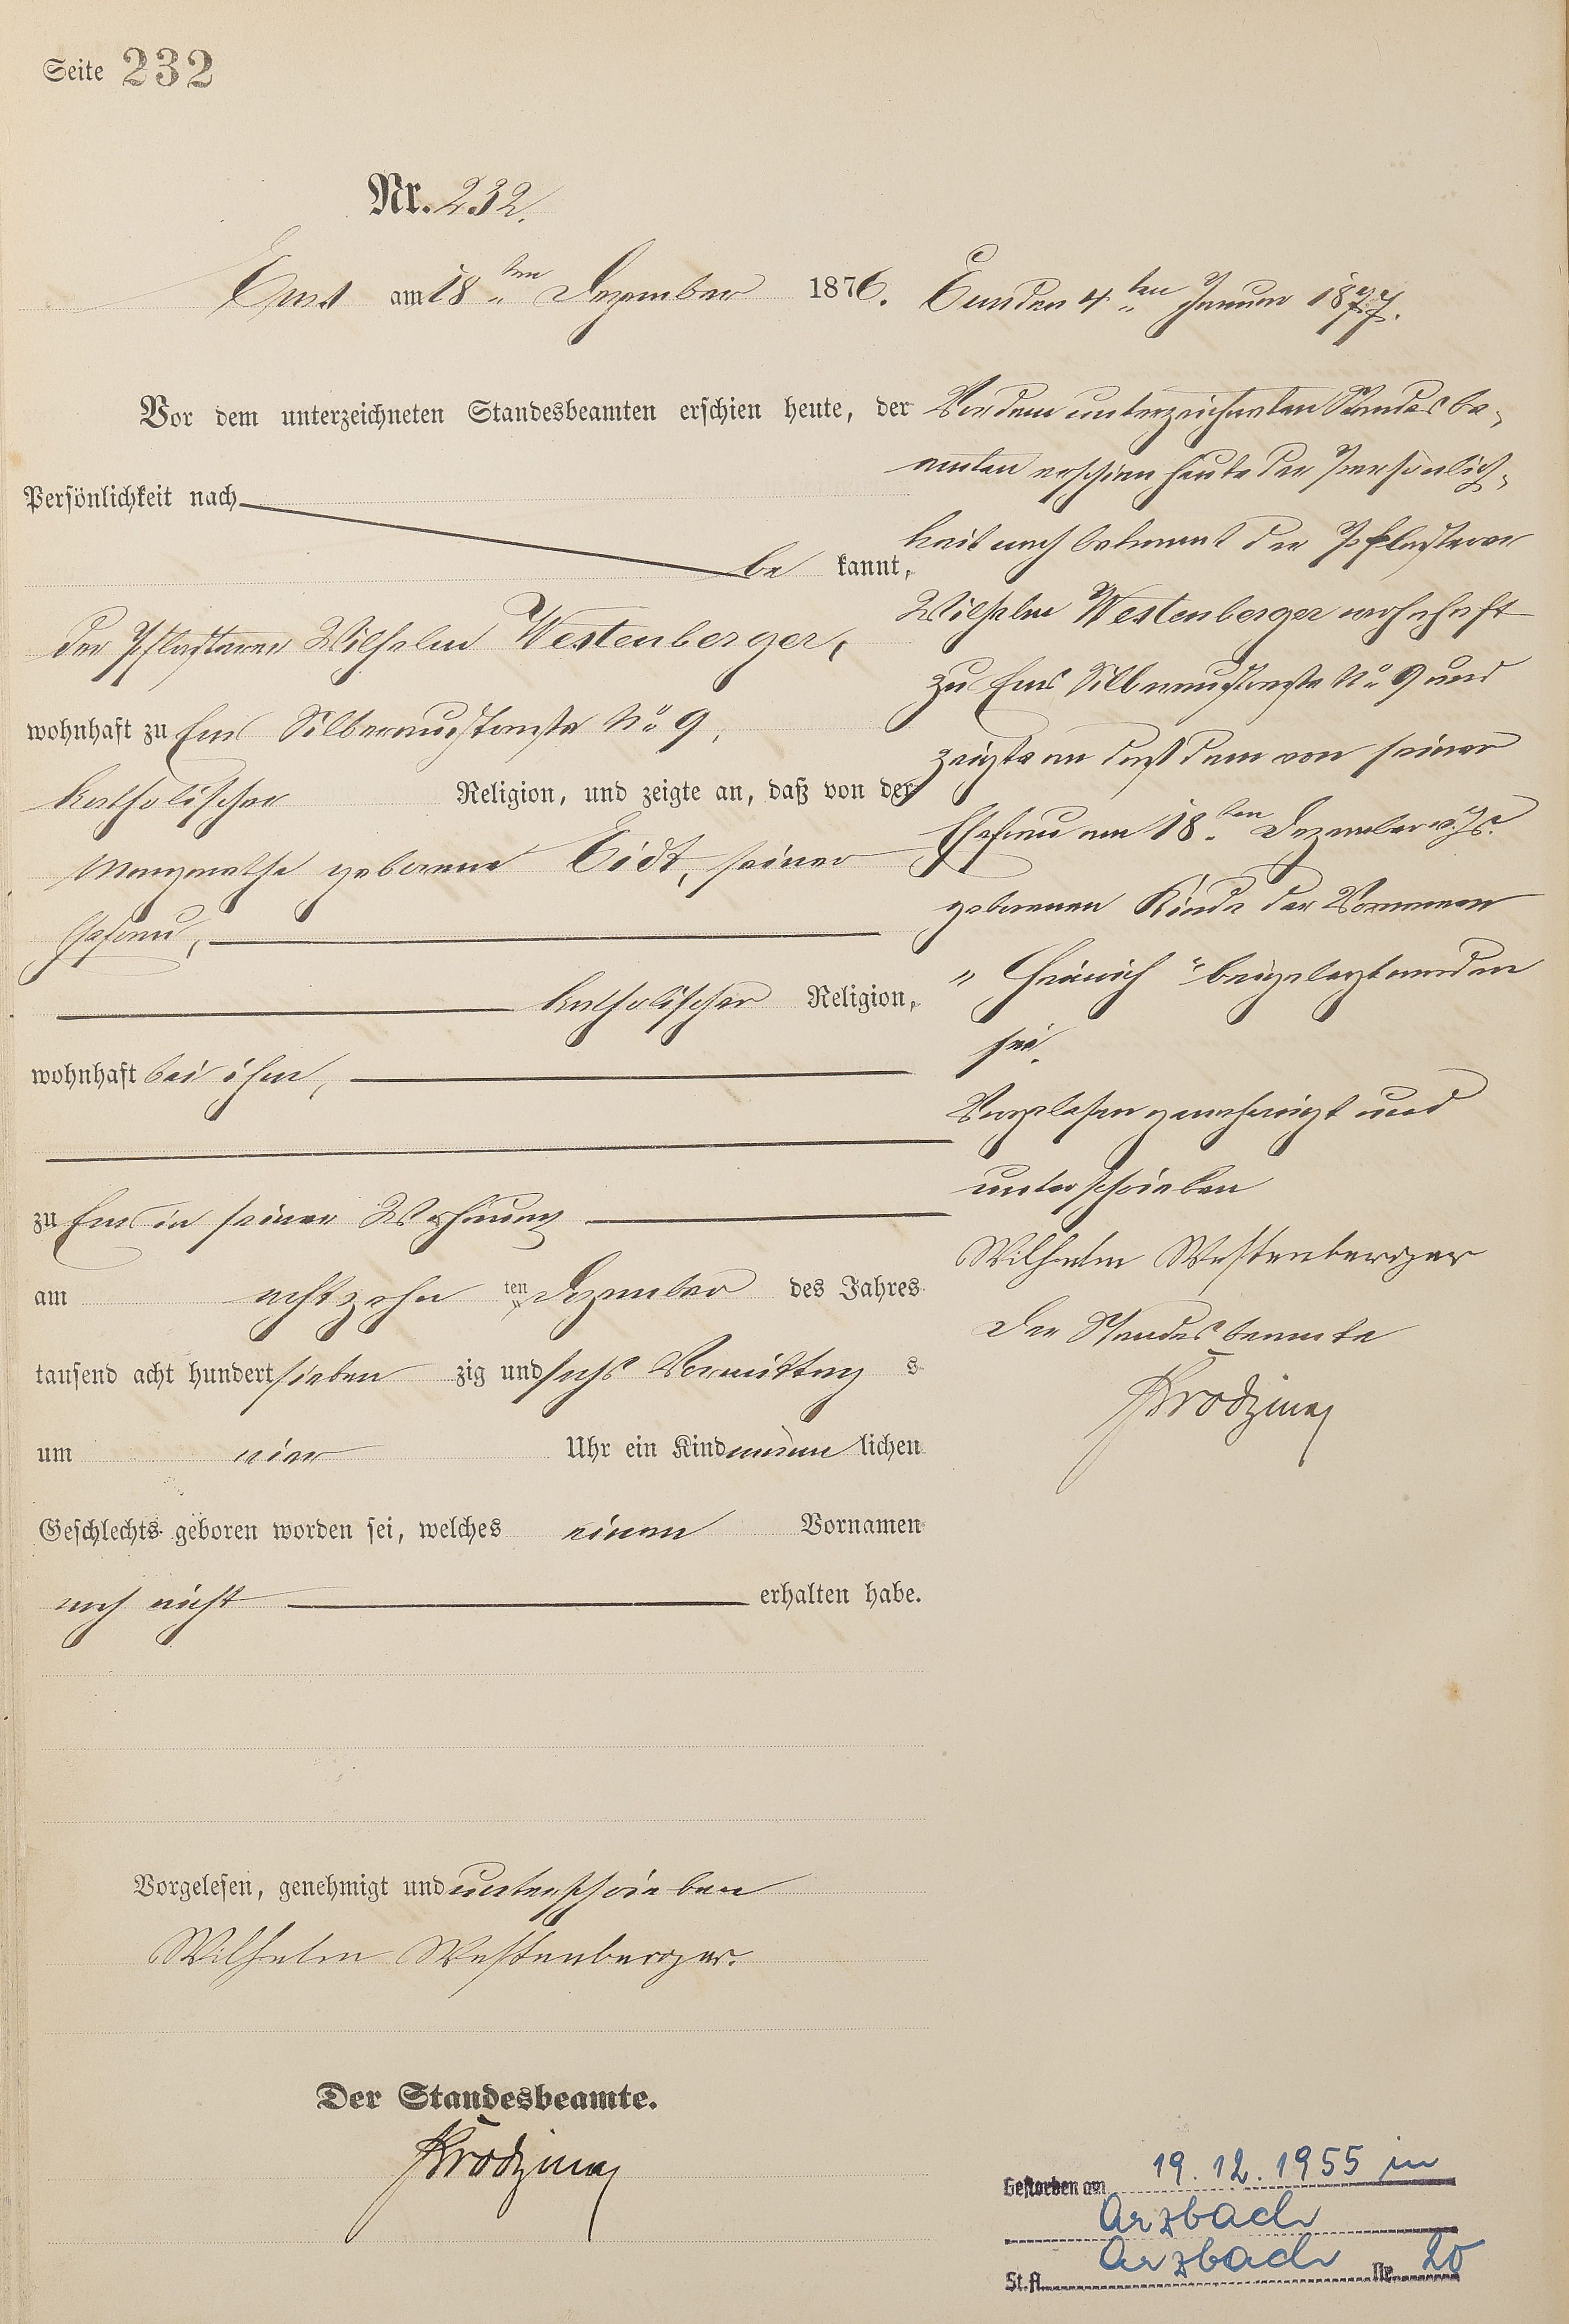 Seite 232
Nr. 232.
Ems am 18ten Dezember 1876.
Vor dem unterzeichneten Standesbeamten erschien heute, der
Persönlichkeit nach
be kannt,
der Pflasterer Wilhelm Westenberger,
wohnhaft zu Ems Silberaustraße No 9,
katholischer Religion, und zeigte an, daß von der
Margarethe geborene Eidt, seiner
Ehefrau,
katholischer Religion,
wohnhaft bei ihm,
zu Ems in seiner Wohnung
am achtzehn ten Dezember des Jahres
tausend acht hundert sieben zig und sechs Vormittag s
um vier Uhr ein Kind männ lichen
Geschlechts geboren worden sei, welches einen Vornamen
noch nicht erhalten habe.
Vorgelesen, genehmigt und unterschrieben
Wilhelm Westenberger.
Der Standesbeamte.
Ems den 4ten Januar 1877.
Vor dem unterzeichneten Standesbe-
amten erschien heute der Persönlich-
keit nach bekannt der Pflasterer
Wilhelm Westenberger wohnhaft
zu Ems Silberaustraße No 9 und
zeigte an daß dem von seiner
Ehefrau am 18ten Dezember v. Js.
geborenen Kinde der Vornamen
"Heinrich" beigelegt worden
sei.
Vorgelesen genehmigt und
unterschrieben
Wilhelm Westenberger
Der Standesbeamte
Gestorben am 19.12.1955 in
Arzbach
St.A. Arzbach Nr. 20